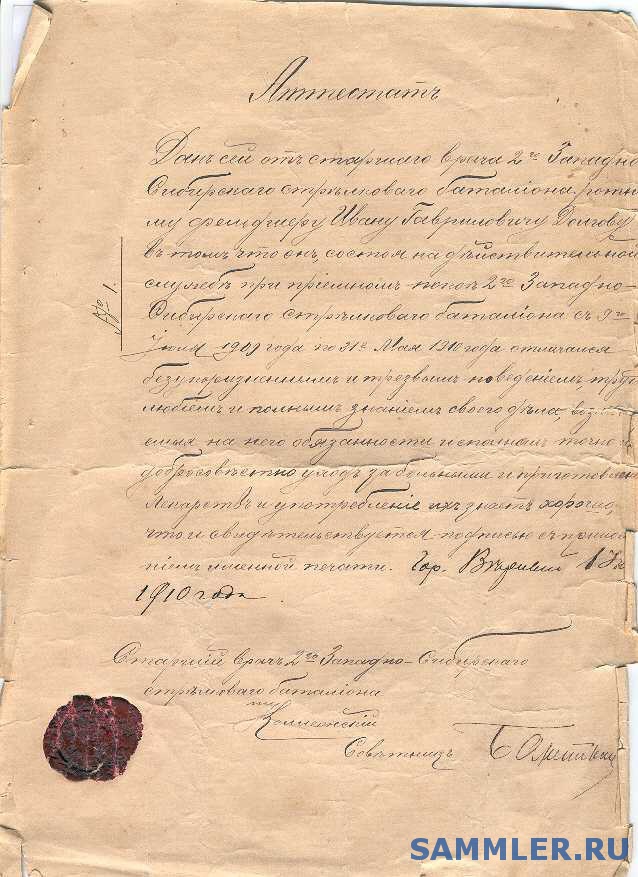 Аттестатъ
Данъ сей отъ старшаго врача 2го Западно
Сибирскаго стрѣлковаго баталіона ротно
му фельдшеру Ивану Гавриловичу Долгову
въ томъ что онъ, состоя на дѣйствительной
службѣ при пріемномъ покоѣ 2го Западно-
Сибирскаго стрѣлковаго баталіона съ 9го
№ 1.
Іюля 1909 года по 31е Мая 1910 года отличался
безукоризненнымъ и трезвымъ поведеніемъ, трудо
любіемъ и полнымъ знаніемъ своего дѣла, возло
емыя на него обязанности исполнялъ точно и
добросовѣстно, уходъ за больными и приготовлен
лекарствъ и употребленіе ихъ знаетъ хорошо,
что и свидѣтельствуется подписью съ прило
ніемъ именной печати. Гор. Вѣрный 1
1910 года
Старшій врачъ 2го Западно-Сибирскаго
стрѣлковаго баталіона
Коллежскій
Совѣтникъ
SAMMLER.RU